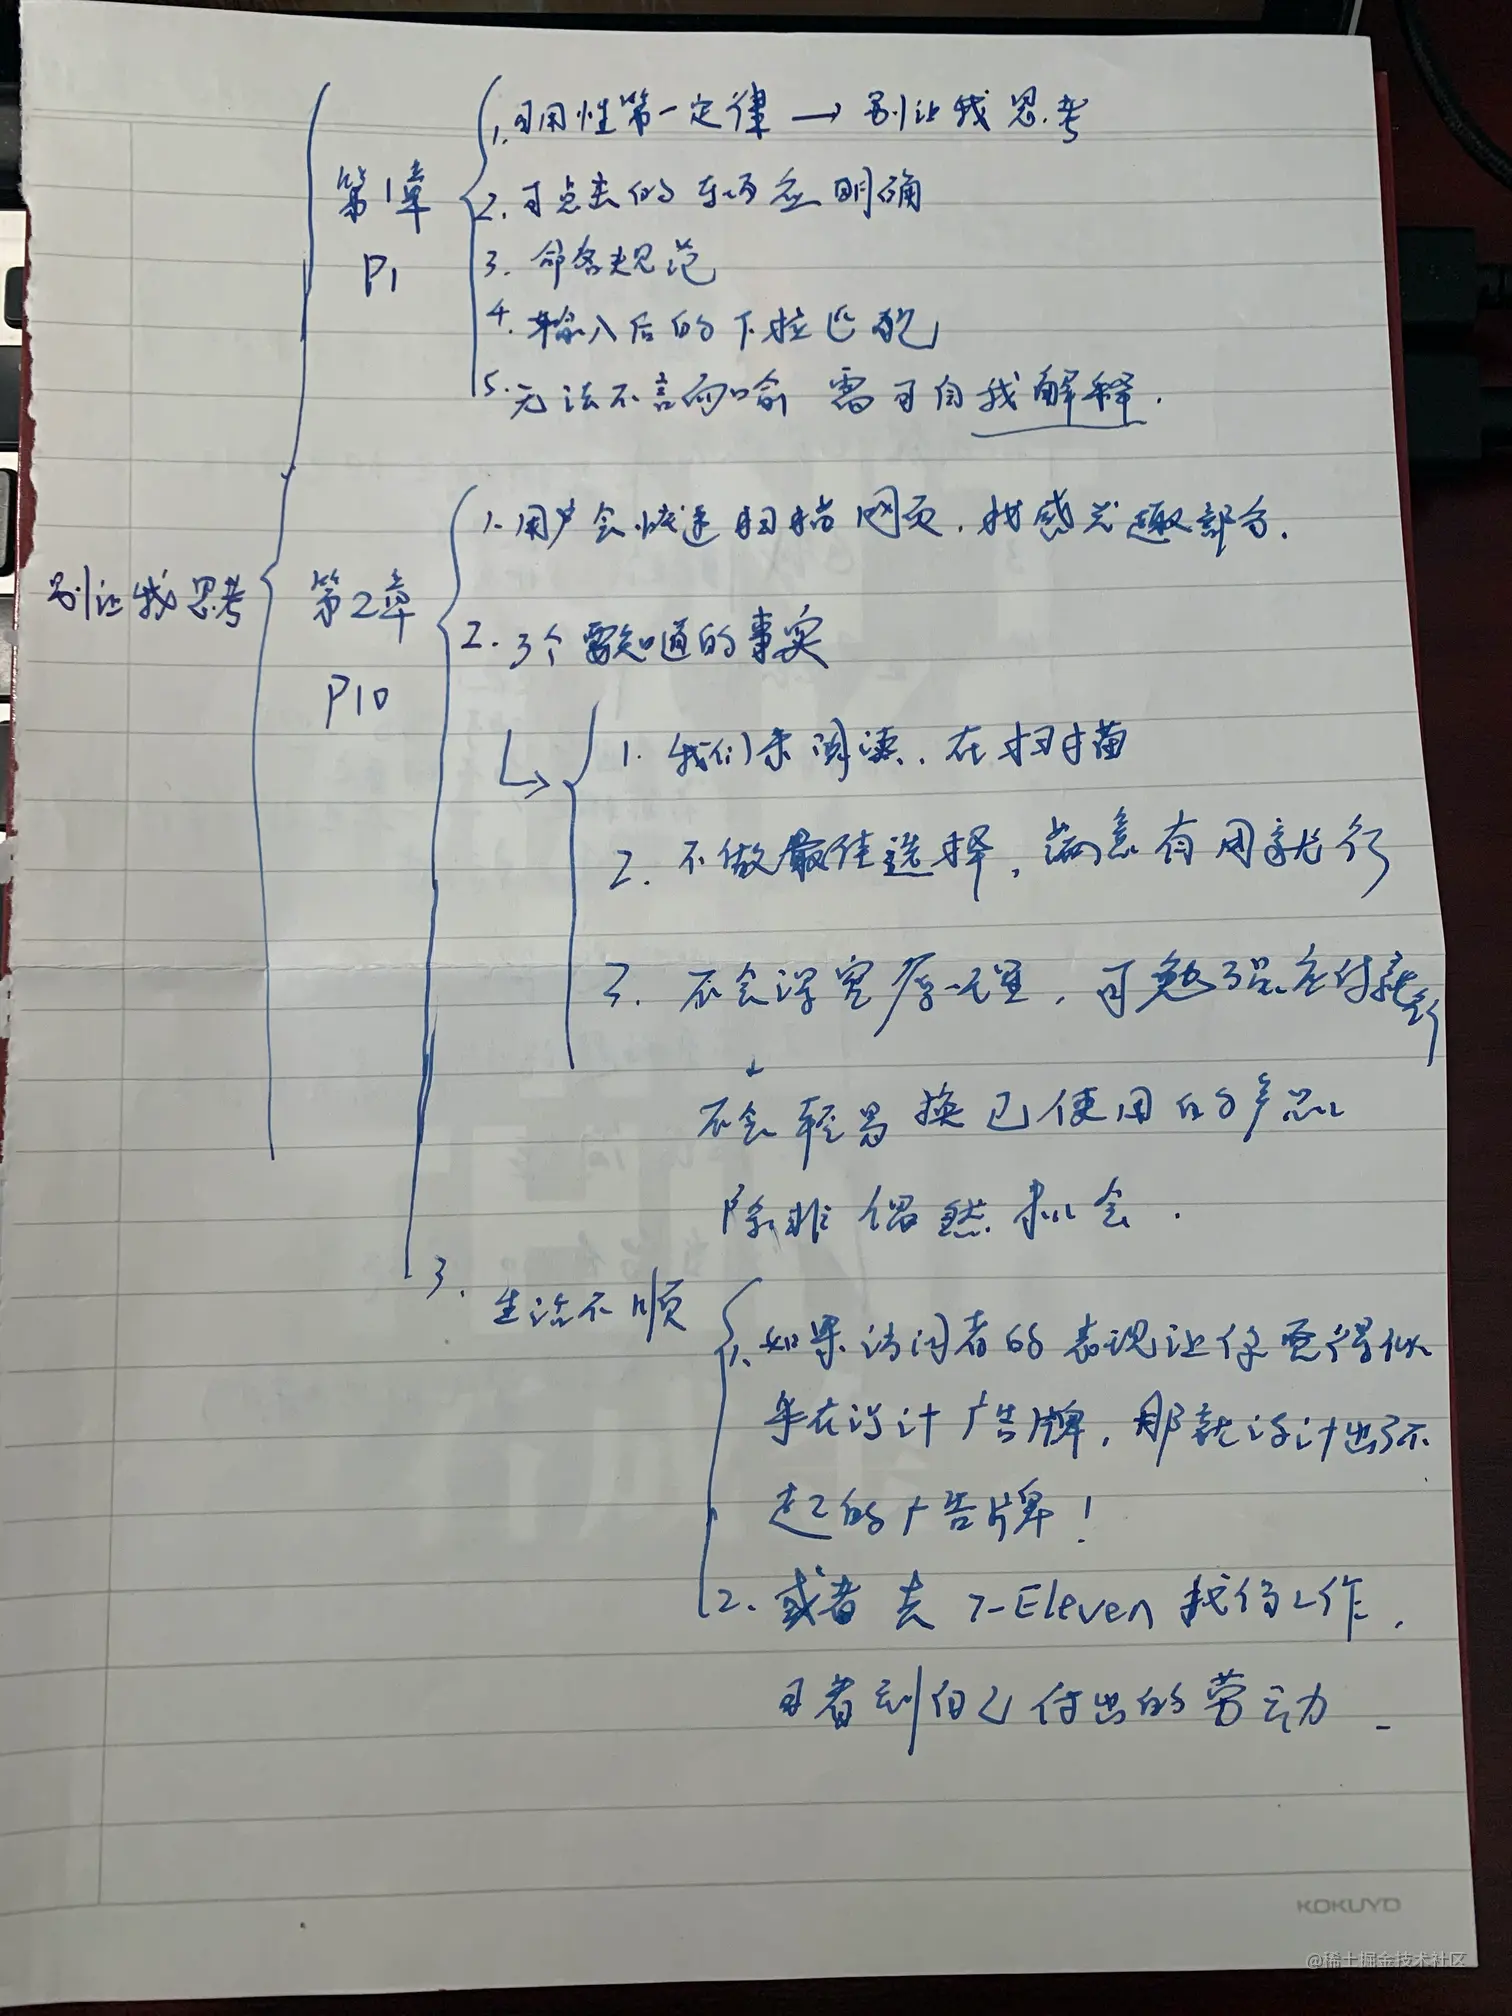 1. 可用性第一定律 → 别让我思考
第1章
2. 可点击的东西应明确
P1
3. 命名规范
4. 输入后的下拉匹配
5. 无法不言而喻 需可自我解释.
1. 用户会快速扫描网页, 找感兴趣部分.
别让我思考
第2章
2. 3个需知道的事实
P10
1. 我们未阅读, 在扫描
2. 不做最佳选择, 满意有用就行
3. 不会深究原理, 可勉强应付就行
↓
不会轻易换已使用的产品
除非偶然机会.
3. 生活不顺
1. 如果访问者的表现让你觉得似
乎在设计广告牌, 那就设计出了不
起的广告牌!
2. 或者去 7-Eleven 找份工作,
可看到自己付出的劳动.
KOKUYO
@稀土掘金技术社区